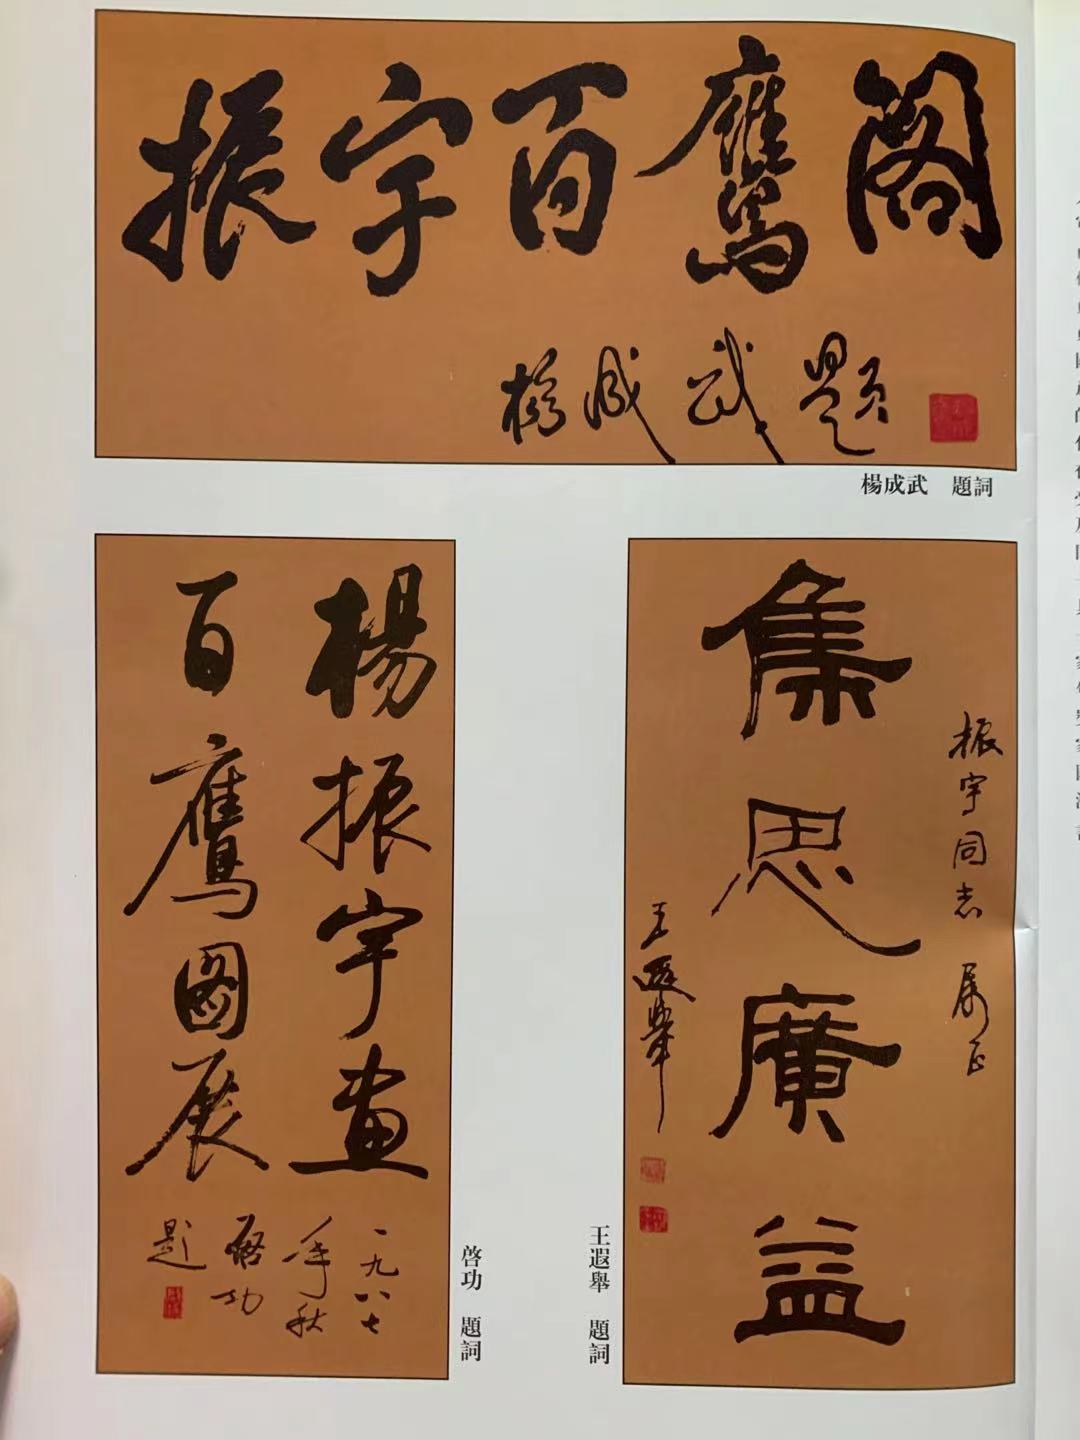 振宇百鷹閣
楊成武題
楊成武 題詞
楊振宇画
百鷹圖展
一九八七
年秋
啓功
題
啓功 題詞
振宇同志 属正
集思廣益
王遐舉
王遐舉 題詞